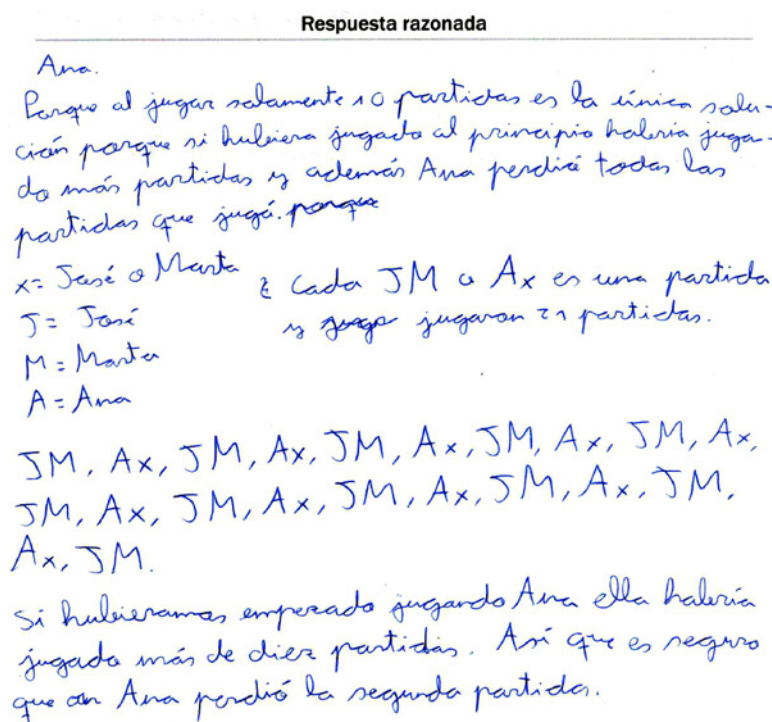 Respuesta razonada
Ana.
Porque al jugar solamente 10 partidas es la única solu-
ción porque si hubiera jugado al principio habría juga-
do más partidas y además Ana perdió todas las
partidas que jugó. porque
x = José o Marta
J = José
M = Marta
A = Ana
Cada JM o Ax es una partida
y jugaron 21 partidas.
JM, Ax, JM, Ax, JM, Ax, JM, Ax, JM, Ax,
JM, Ax, JM, Ax, JM, Ax, JM, Ax, JM,
Ax, JM.
Si hubieramos empezado jugando Ana ella habría
jugado más de diez partidas. Así que es seguro
que Ana perdió la segunda partida.